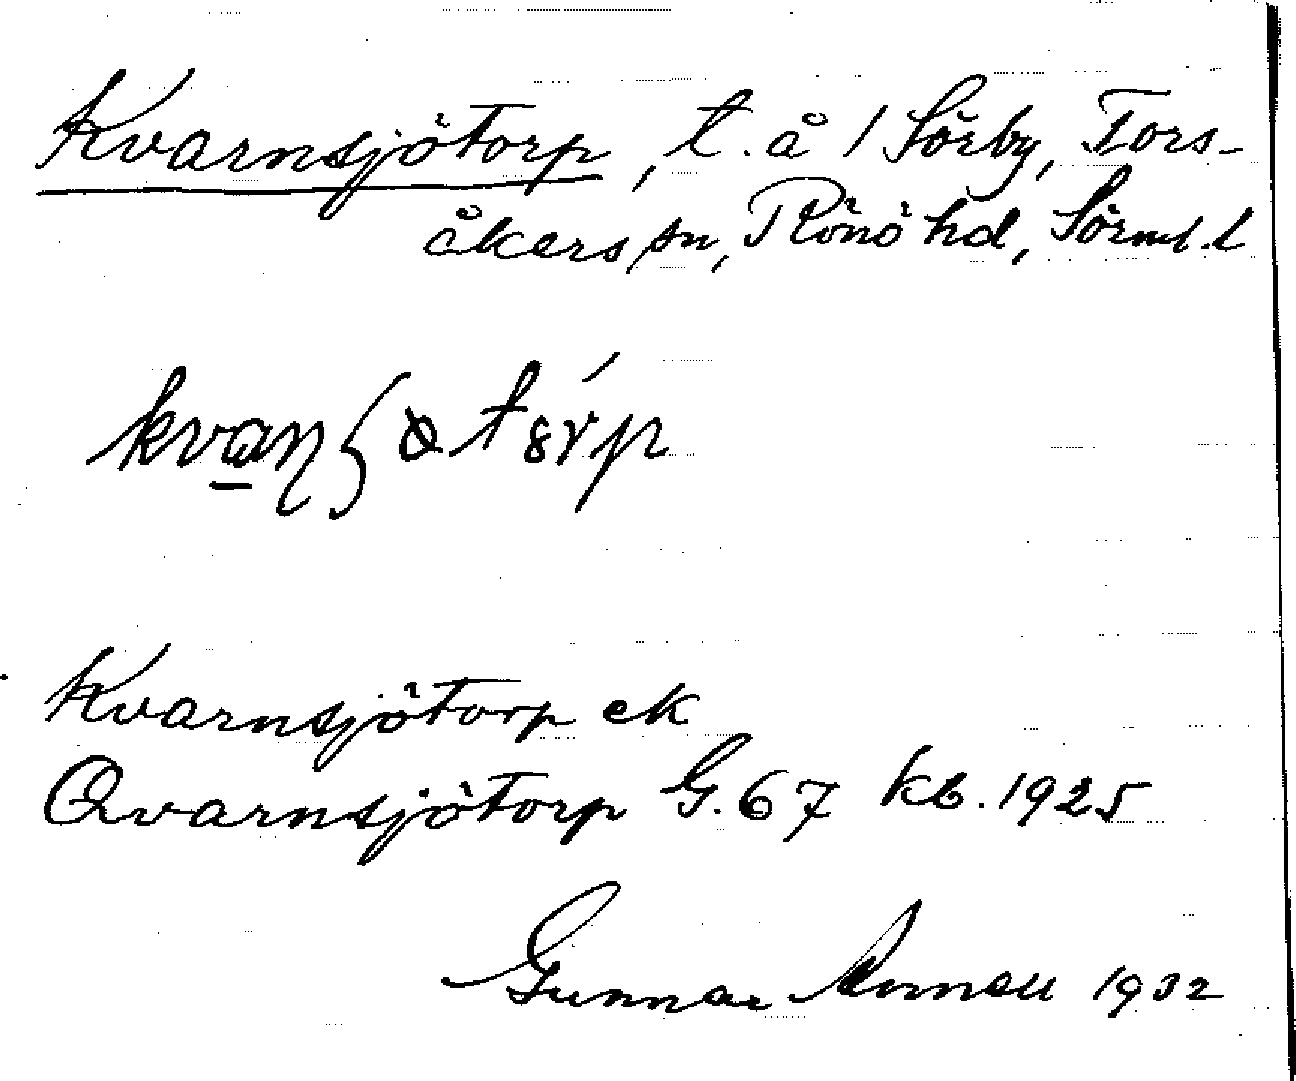 Kvarnsjötorp, t. å / Sörby, Tors-
åkers sn, Rönö hd, Sörml. l
Kvarnsjötorp ek
Qvarnsjötorp G. 67 kb. 1925
Gunnar Annell 1932